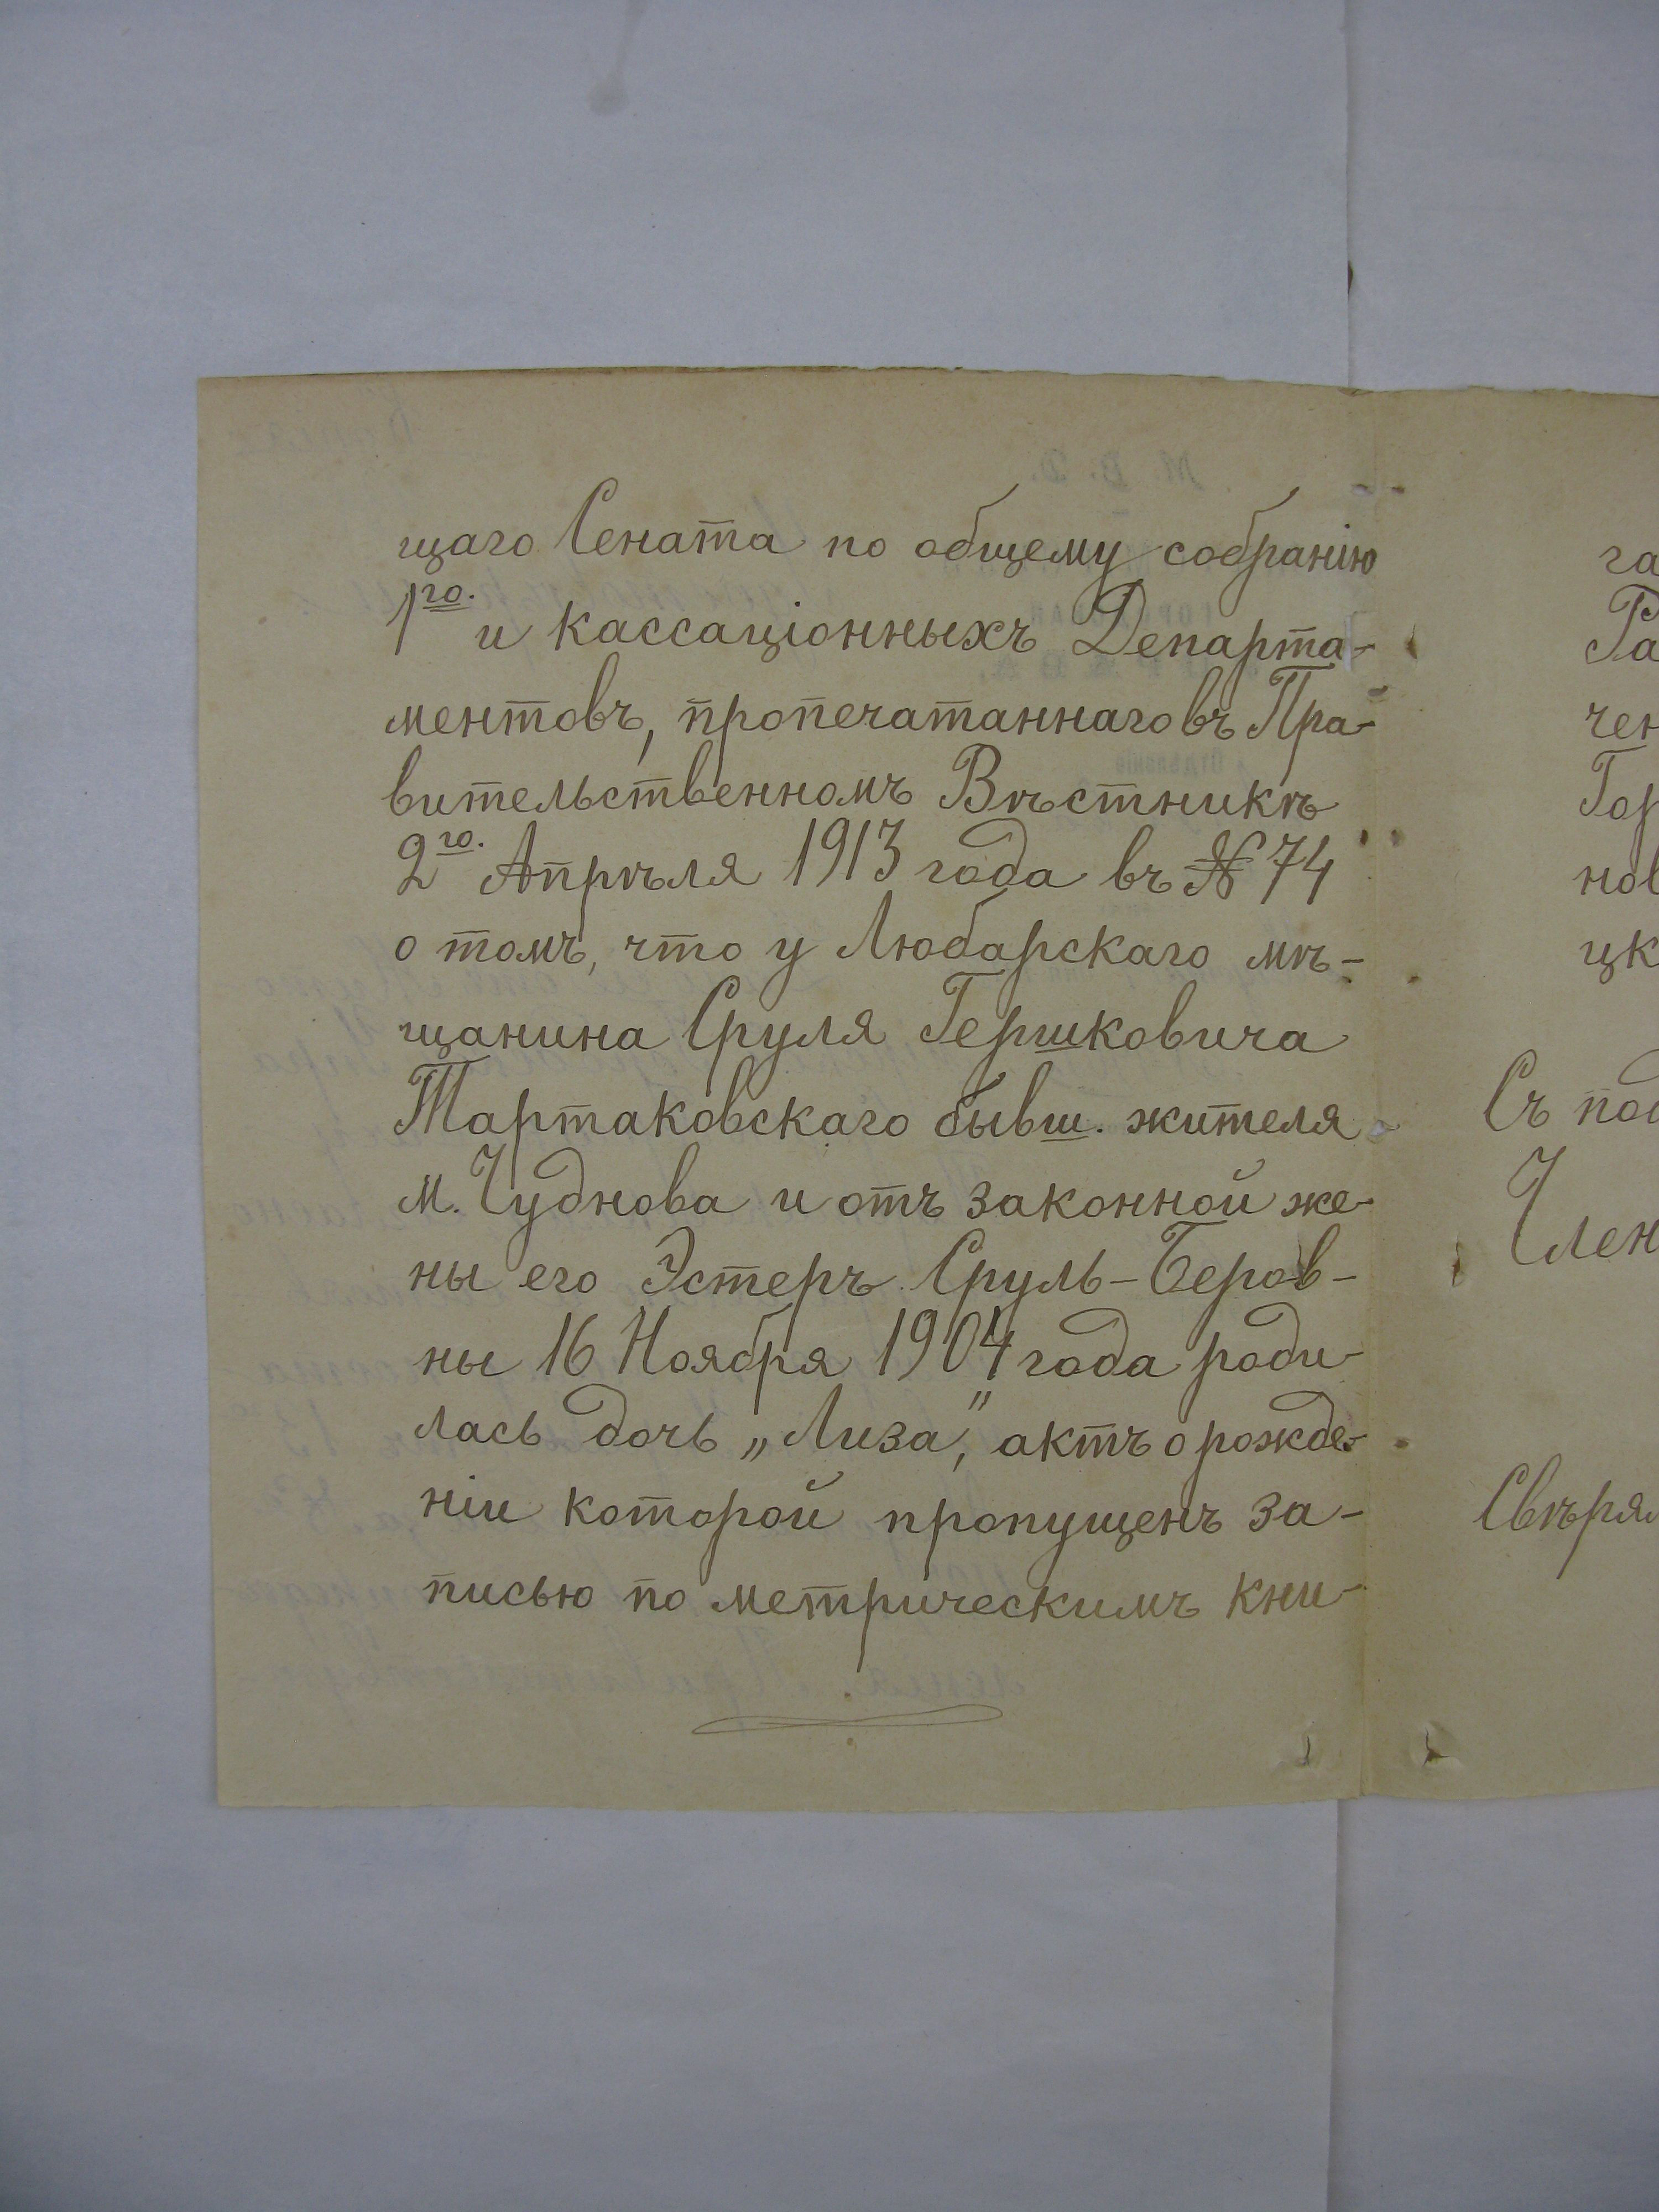 щаго Сената по общему собранію
1го. и кассаціонныхъ Департа-
ментовъ, пропечатаннаго въ Пра-
вительственномъ Вѣстникѣ
2го. Апрѣля 1913 года въ № 74
о томъ, что у Любарскаго мѣ-
щанина Сруля Гершковича
Тартаковскаго бывш. жителя
м. Чуднова и отъ законной же-
ны его Эстеръ Сруль-Беров-
ны 16 Ноября 1904 года роди-
лась дочь „Лиза", актъ о рожде-
ніи которой пропущенъ за-
писью по метрическимъ кни-
га
Ра
чен
Гор
нов
цк
Съ под
Член
Свѣрял